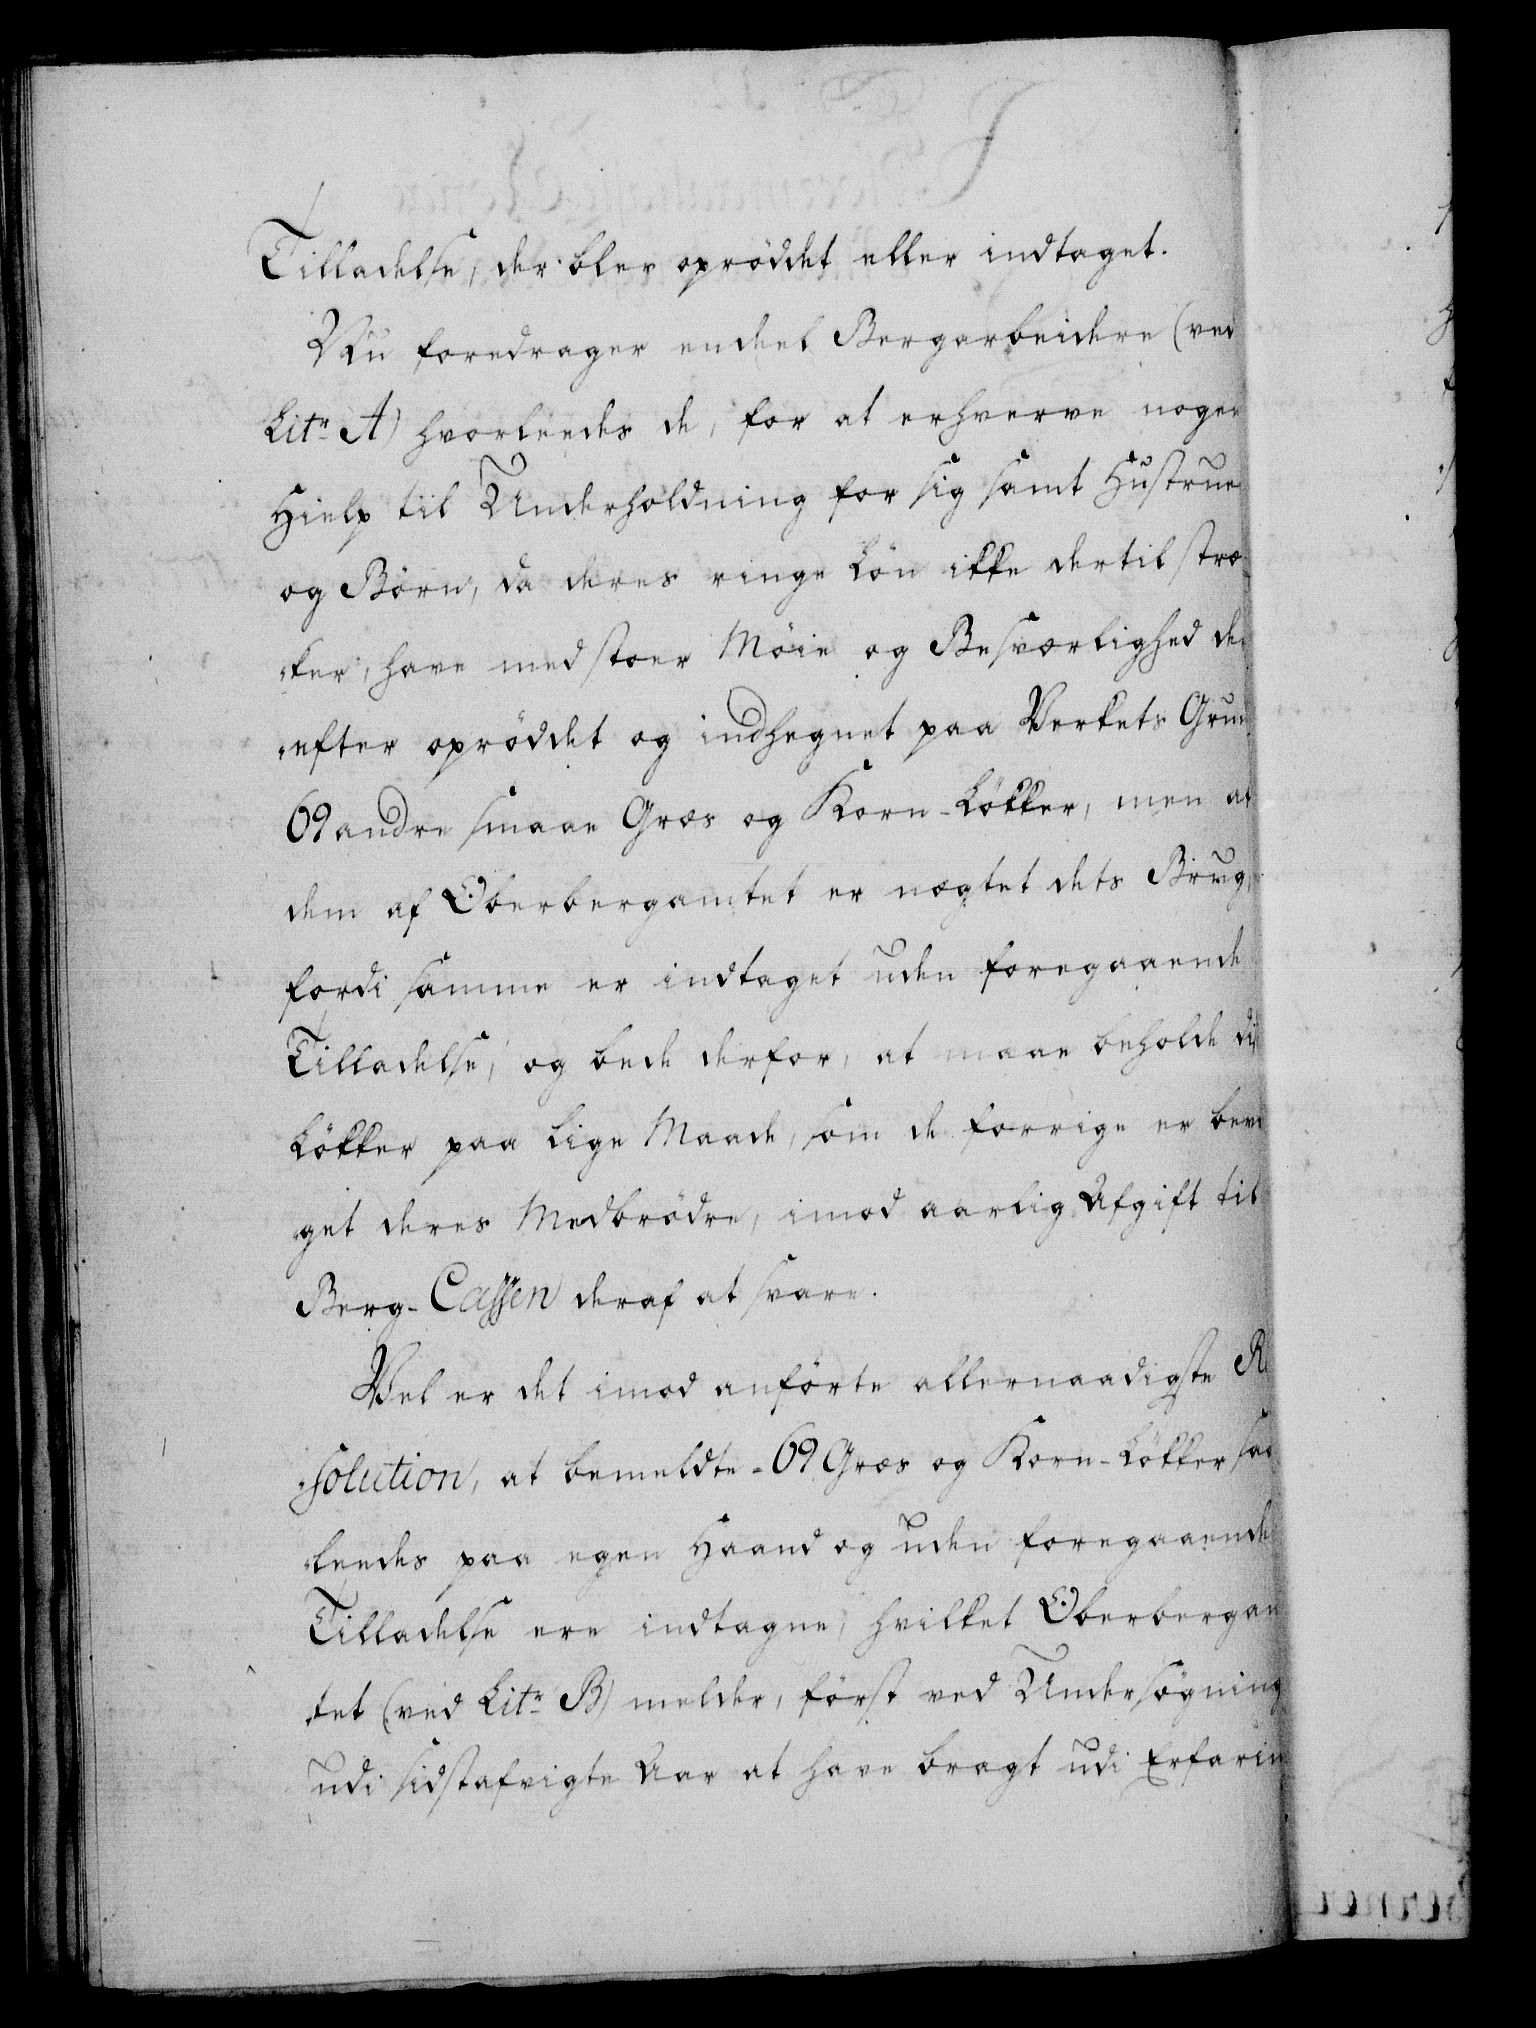 Tilladelse, der blev oprøddet eller indtaget.
Nu foredrager endeel Bergarbeidere (ved
Litr A) hvorleedes de, for at erhverve nogen
Hielp til Underholdning for sig samt Hustruer
og Børn, da deres ringe Løn ikke dertil stræ-
ker, have med stoer Møie og Besværlighed der-
efter oprøddet og indhegnet paa Verkets Grund
69 andre smaae Græs og Korn-Løkker, men at
dem af Oberbergamtet er nægtet dets Brug,
fordi samme er indtaget uden foregaaende
Tilladelse, og bede derfor, at maae beholde di
Løkker paa lige Maade, som de forrige er bevil
get deres Medbrødre, imod aarlig Afgift til
Berg-Cassen deraf at svare.
Vel er det imod anførte allernaadigste Re
solution, at bemeldte 69 Græs og Korn-Løkker saa
leedes paa egen Haand og uden foregaaende
Tilladelse ere indtagne, hvilket Oberbergam
tet (ved Litr B) melder, først ved Undersøgning
udi sidstafvigte Aar at have bragt udi Erfarin